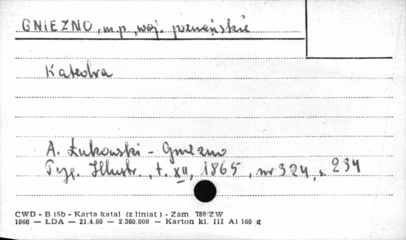 GNIEZNO, m.p., woj. poznańskie
Katedra
A. Łukowski - Gniezno
Tyg. Illustr., t. XII, 1865, nr 324, s. 234
CWD - B 15b - Karta katal (z liniat.) - Zam 788/ZW
1060 — ŁDA — 21.4.60 — 2.360.000 — Karton kl. III A1 160 g